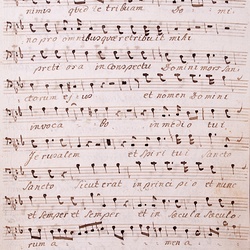 nimis quid retribuam Do mi
no pro omnibus quæ retribuit mihi
preti o sa in conspectu Domini mors san
ctorum ejus et nomen Domini
invoca bo in medio tui
Jerusalem et Spiri tui Sancto
Sancto Sicut erat in principio et nunc
et Semper et Semper et in Sæcula Sæculo
rum a men a